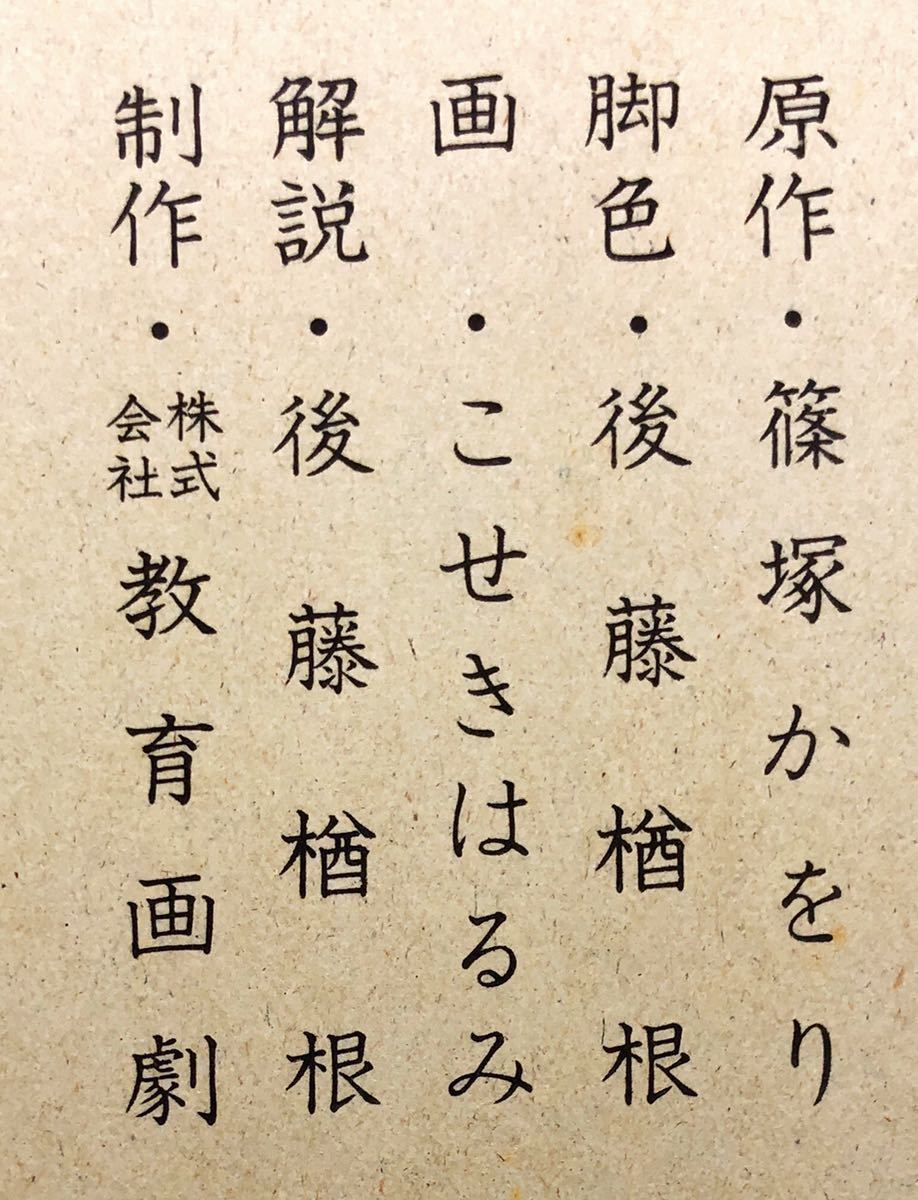 原作・篠塚かをり
脚色・後藤楢根
画・こせきはるみ
解説・後藤楢根
制作・株式会社教育画劇